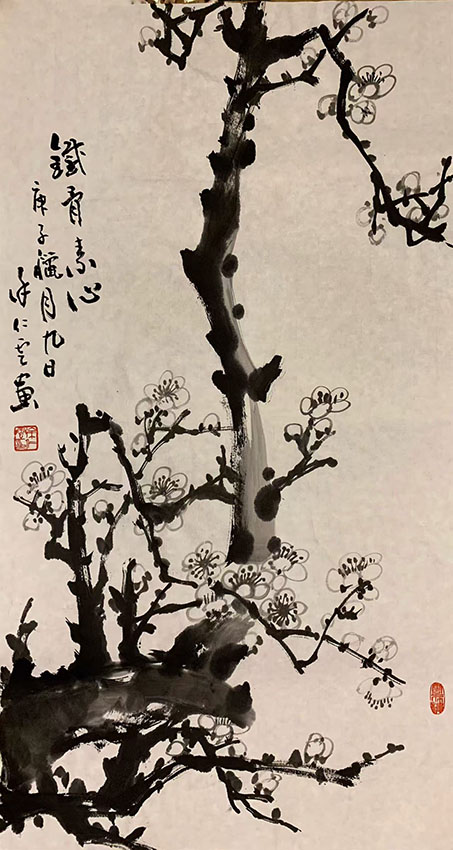 鐵骨素心
庚子臘月九日
仁云畫